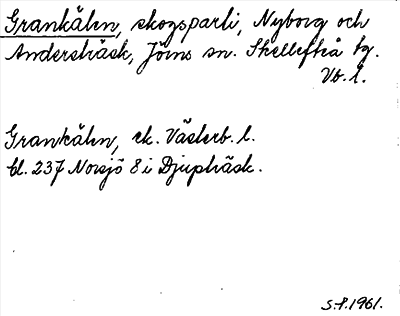 Grankälen, skogsparti, Nyborg och
Andersträsk, Jörns sn. Skellefteå tg.
Vb. l.
Grankälen, ek. Västerb. l.
bl. 237 Norsjö 8 i Djupträsk.
S.P. 1961.